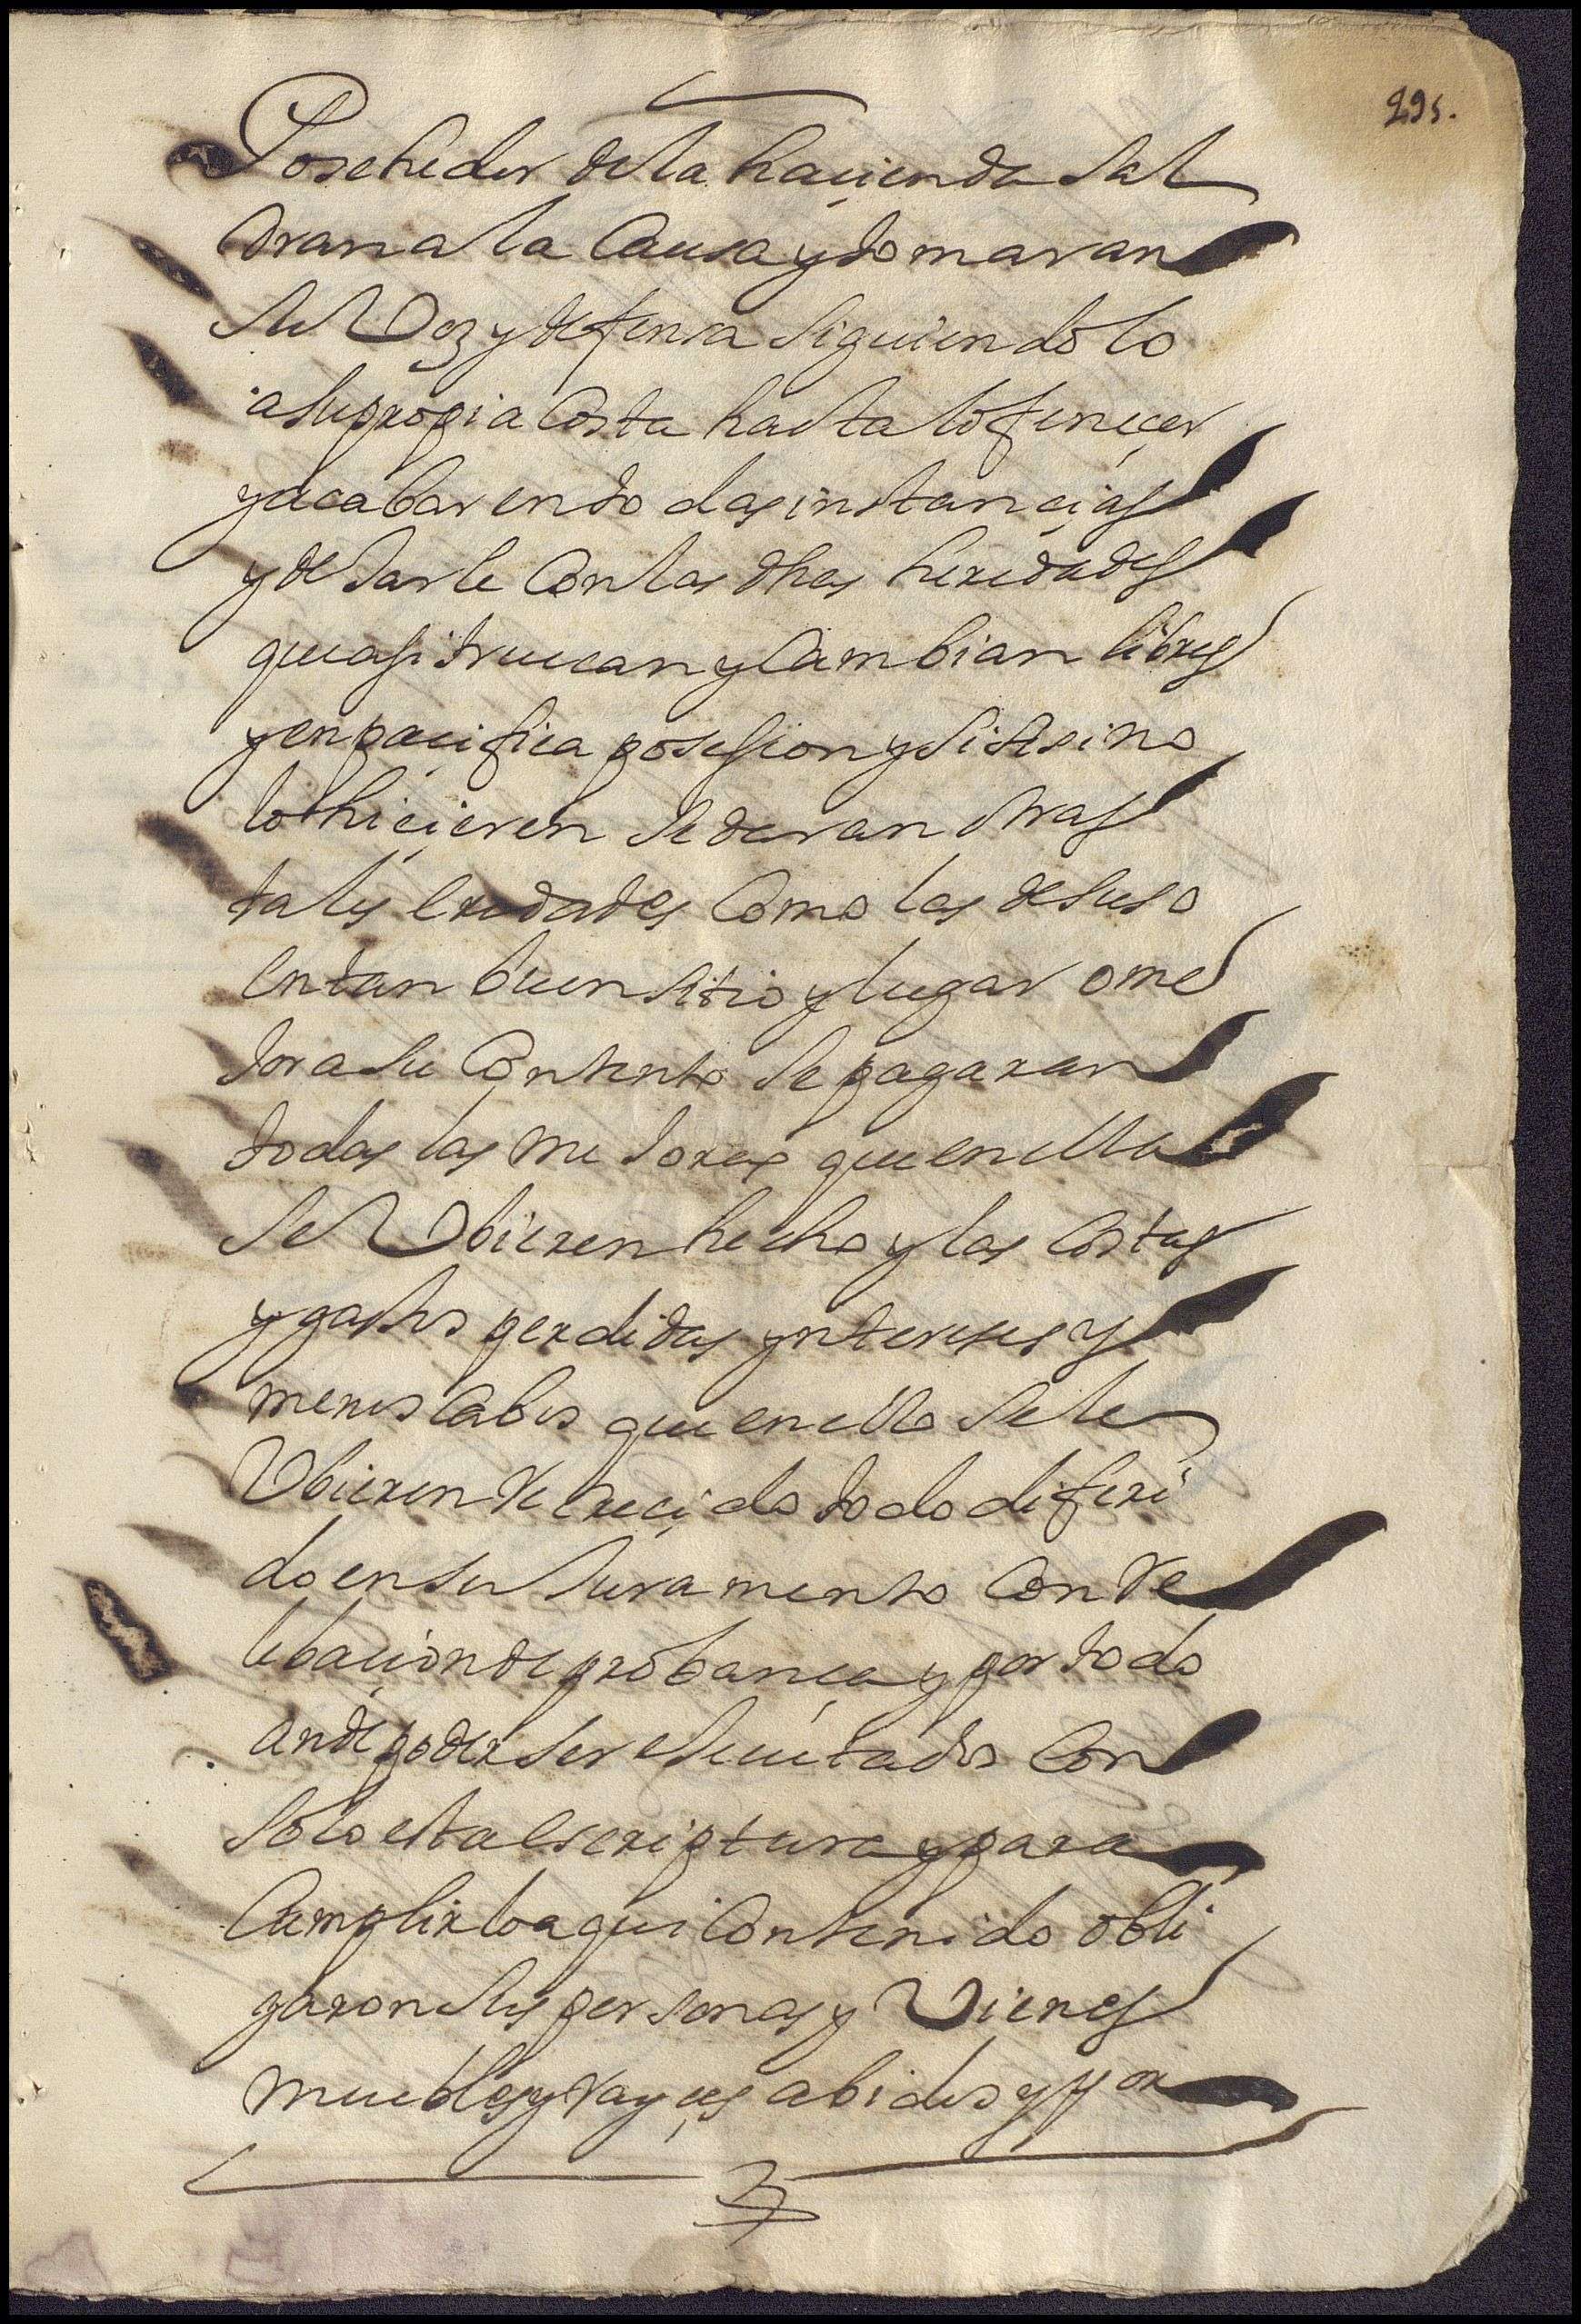 295.
Posehedor de la haçienda sal
dran a la Causa y tomaran
su Voz y defensa siguiendolo
a su propia Costa hasta lo feneçer
y acabar en todas instançias
y dexarle Con las dhas heredades
que asi truecan y Cambian libres
y en paçifica posesion y si asi no
lo hiçieren le daran otras
tales eredades Como las de suso
en tan buen sitio y lugar o me
jor a su Contento le pagaran
todas las mejoras que en ella
se Vbieren hecho y las Costas
y gastos perdidas yntereses y
menoscabos que en ello se le
Vbieren Recreçido todo diferi
do en su Juramento Con Re
lebaçion de probança y por todo
an de poder ser executados Con
solo esta escriptura y para
Cumplir lo aqui Contenido obli
garon sus personas y Vienes
muebles y Rayçes abidos y por